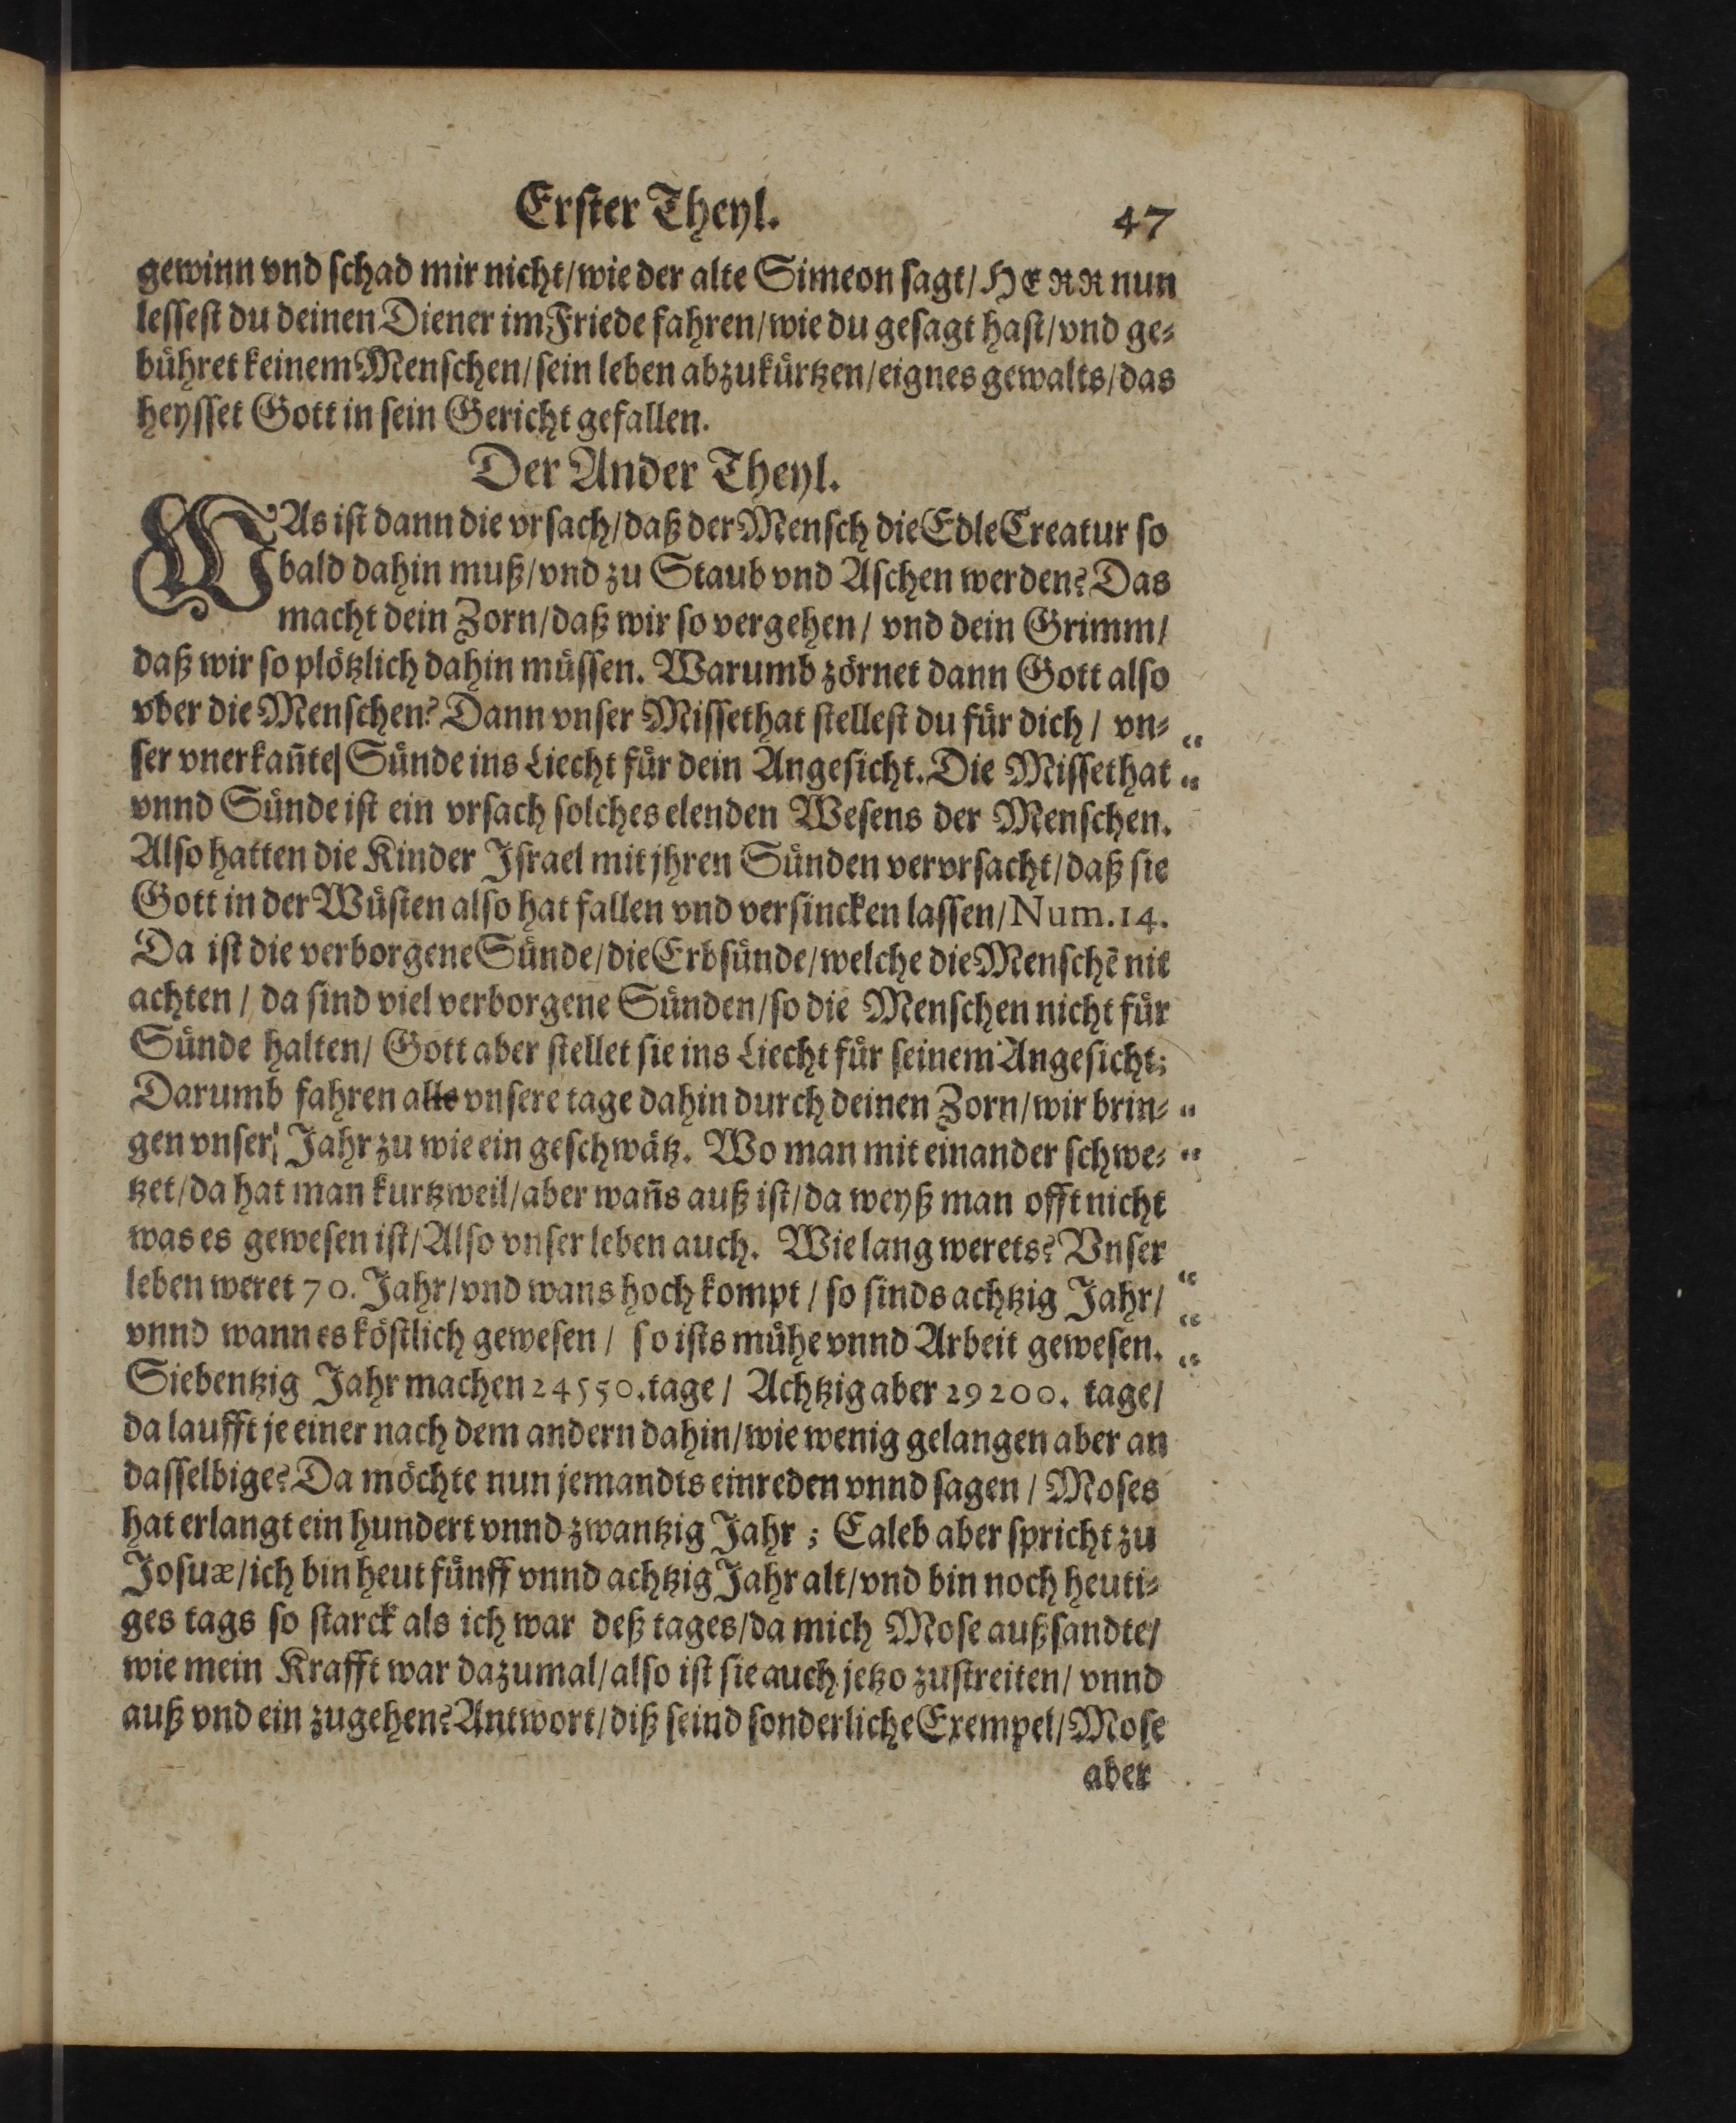 Erster Theyl. 47
gewinn vnd schad mir nicht/wie der alte Simeon sagt/HERR nun
lessest du deinen Diener im Friede fahren/wie du gesagt hast/vnd ge-
bühret keinem Menschen/sein leben abzukürtzen/eignes gewalts/das
heysset Gott in sein Gericht gefallen.
Der Ander Theyl.
WAs ist dann die vrsach/daß der Mensch die Edle Creatur so
bald dahin muß/vnd zu Staub vnd Aschen werden? Das
macht dein Zorn/daß wir so vergehen/ vnd dein Grimm/
daß wir so plötzlich dahin müssen. Warumb zörnet dann Gott also
vber die Menschen? Dann vnser Missethat stellest du für dich / vn- “
ser vnerkañte Sünde ins Liecht für dein Angesicht. Die Missethat “
vnnd Sünde ist ein vrsach solches elenden Wesens der Menschen.
Also hatten die Kinder Israel mit jhren Sünden vervrsacht/daß sie
Gott in der Wüsten also hat fallen vnd versincken lassen/Num.14.
Da ist die verborgene Sünde/die Erbsünde/welche die Menschē nit
achten / da sind viel verborgene Sünden/so die Menschen nicht für
Sünde halten/ Gott aber stellet sie ins Liecht für seinem Angesicht;
Darumb fahren alle vnsere tage dahin durch deinen Zorn/wir brin- “
gen vnser Jahr zu wie ein geschwätz. Wo man mit einander schwe- “
tzet/da hat man kurtzweil/aber wañs auß ist/da weyß man offt nicht
was es gewesen ist/Also vnser leben auch. Wie lang werets? Vnser
leben weret 70. Jahr/vnd wans hoch kompt / so sinds achtzig Jahr/ “
vnnd wann es köstlich gewesen / so ists mühe vnnd Arbeit gewesen. “
Siebentzig Jahr machen 24550.tage / Achtzig aber 29200. tage/ “
da laufft je einer nach dem andern dahin/wie wenig gelangen aber an
dasselbige? Da möchte nun jemandts einreden vnnd sagen / Moses
hat erlangt ein hundert vnnd zwantzig Jahr ; Caleb aber spricht zu
Josuæ/ich bin heut fünff vnnd achtzig Jahr alt/vnd bin noch heuti-
ges tags so starck als ich war deß tages/da mich Mose außsandte/
wie mein Krafft war dazumal/also ist sie auch jetzo zustreiten/ vnnd
auß vnd ein zugehen? Antwort/diß seind sonderliche Exempel/Mose
aber